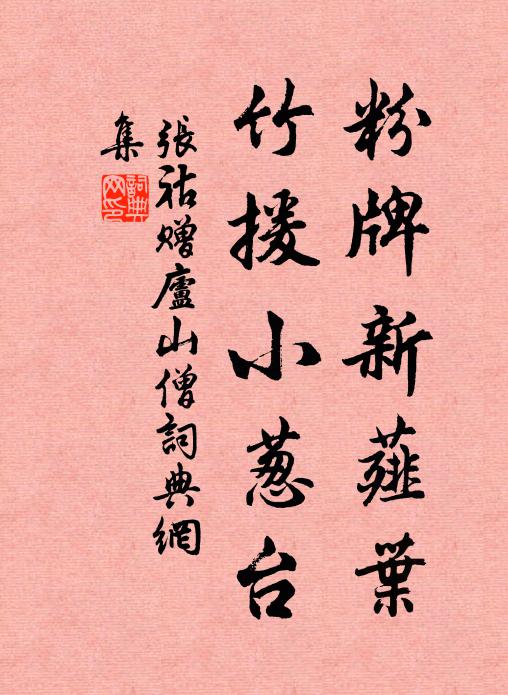 粉牌新薤葉
竹援小葱台
張祜贈廬山僧詞典網
集
詞典网印